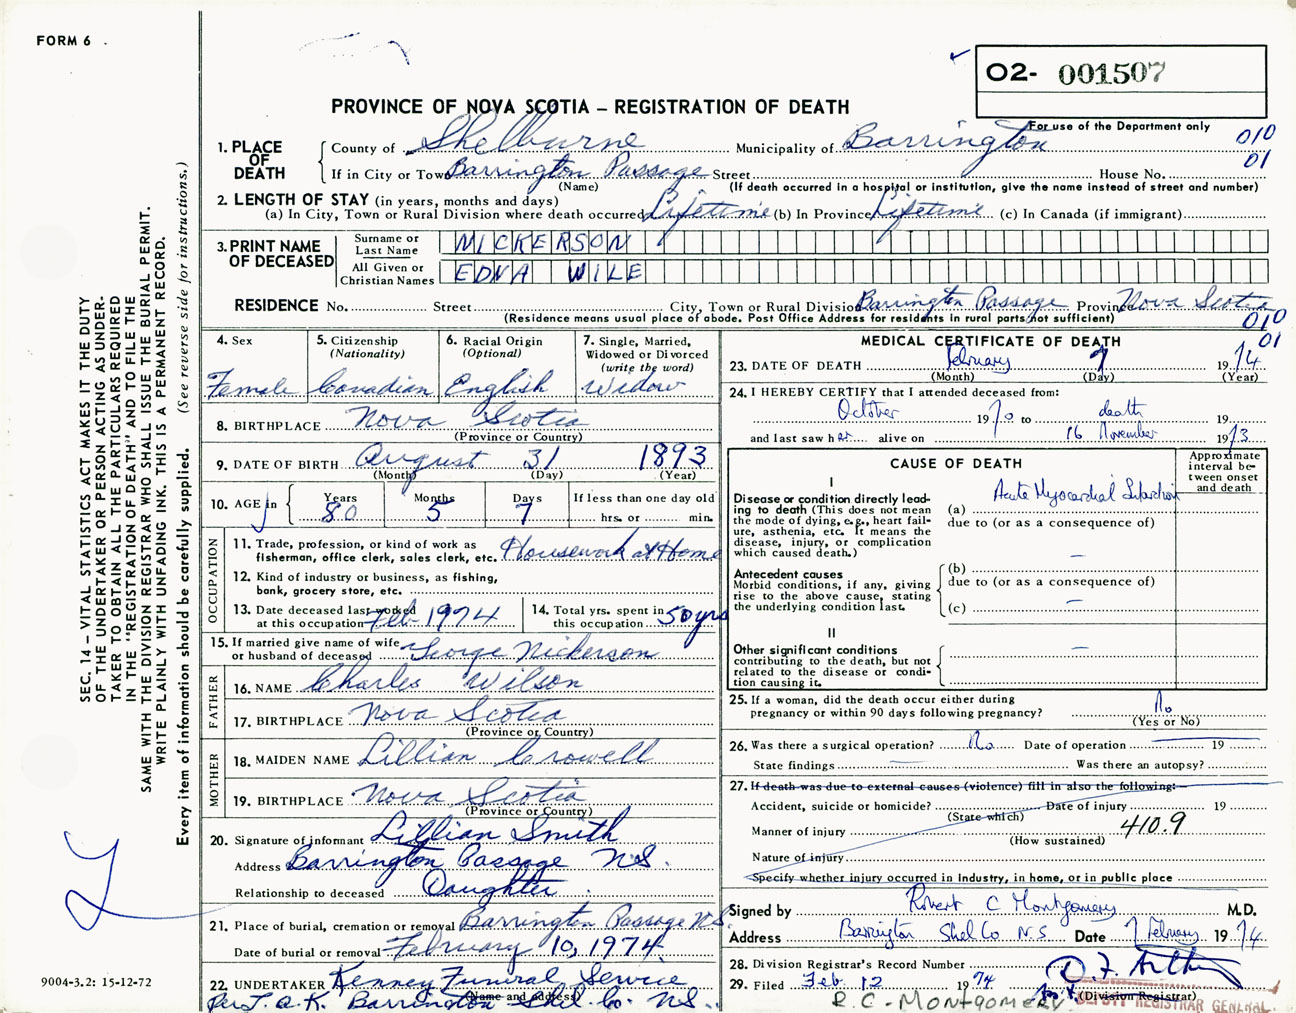 FORM 6
O2- 001507
PROVINCE OF NOVA SCOTIA – REGISTRATION OF DEATH
For use of the Department only
010
01
1. PLACE OF DEATH
County of Shelburne Municipality of Barrington
If in City or Town Barrington Passage Street House No.
(Name) (If death occurred in a hospital or institution, give the name instead of street and number)
2. LENGTH OF STAY (in years, months and days)
(a) In City, Town or Rural Division where death occurred Lifetime (b) In Province Lifetime (c) In Canada (if immigrant)
3. PRINT NAME OF DECEASED
Surname or Last Name NICKERSON
All Given or Christian Names EDNA WILE
RESIDENCE No. Street City, Town or Rural Division Barrington Passage Province Nova Scotia
(Residence means usual place of abode. Post Office Address for residents in rural parts not sufficient)
010
01
4. Sex Female
5. Citizenship (Nationality) Canadian
6. Racial Origin (Optional) English
7. Single, Married, Widowed or Divorced (write the word) Widow
8. BIRTHPLACE Nova Scotia
(Province or Country)
9. DATE OF BIRTH August 31 1893
(Month) (Day) (Year)
10. AGE in Years 80 Months 5 Days 7 If less than one day old
hrs. or min.
OCCUPATION
11. Trade, profession, or kind of work as fisherman, office clerk, sales clerk, etc. Housework at Home
12. Kind of industry or business, as fishing, bank, grocery store, etc.
13. Date deceased last worked at this occupation Feb 1974
14. Total yrs. spent in this occupation 50 yrs
15. If married give name of wife or husband of deceased George Nickerson
FATHER
16. NAME Charles Wilson
17. BIRTHPLACE Nova Scotia
(Province or Country)
MOTHER
18. MAIDEN NAME Lillian Crowell
19. BIRTHPLACE Nova Scotia
(Province or Country)
20. Signature of informant Lillian Smith
Address Barrington Passage N.S.
Relationship to deceased Daughter
21. Place of burial, cremation or removal Barrington Passage N.S.
Date of burial or removal February 10, 1974
22. UNDERTAKER Kenney Funeral Service
(Name and address)
Per T.A.K. Barrington Shel. Co. N.S.
MEDICAL CERTIFICATE OF DEATH
23. DATE OF DEATH February 7 1974
(Month) (Day) (Year)
24. I HEREBY CERTIFY that I attended deceased from:
October 1970 to death 19
and last saw her alive on 16 November 1973
CAUSE OF DEATH
Approximate interval between onset and death
I
Disease or condition directly leading to death (This does not mean the mode of dying, e.g., heart failure, asthenia, etc. It means the disease, injury, or complication which caused death.)
(a) Acute Myocardial Infarction
due to (or as a consequence of)
Antecedent causes
Morbid conditions, if any, giving rise to the above cause, stating the underlying condition last.
(b) –
due to (or as a consequence of)
(c) –
II
Other significant conditions
contributing to the death, but not related to the disease or condition causing it. –
25. If a woman, did the death occur either during pregnancy or within 90 days following pregnancy? No
(Yes or No)
26. Was there a surgical operation? No Date of operation 19
State findings – Was there an autopsy?
27. If death was due to external causes (violence) fill in also the following:
Accident, suicide or homicide? Date of injury 19
(State which)
Manner of injury 410.9
(How sustained)
Nature of injury
Specify whether injury occurred in industry, in home, or in public place
Signed by Robert C Montgomery M.D.
Address Barrington Shel Co N.S. Date 7 February 1974
28. Division Registrar's Record Number
29. Filed Feb. 12 1974
(Division Registrar)
DEPUTY REGISTRAR GENERAL
R.C. MONTGOMERY
SEC. 14 – VITAL STATISTICS ACT MAKES IT THE DUTY
OF THE UNDERTAKER OR PERSON ACTING AS UNDER-
TAKER TO OBTAIN ALL THE PARTICULARS REQUIRED
IN THE "REGISTRATION OF DEATH" AND TO FILE THE
SAME WITH THE DIVISION REGISTRAR WHO SHALL ISSUE THE BURIAL PERMIT.
WRITE PLAINLY WITH UNFADING INK. THIS IS A PERMANENT RECORD.
Every item of information should be carefully supplied. (See reverse side for instructions.)
9004-3.2: 15-12-72